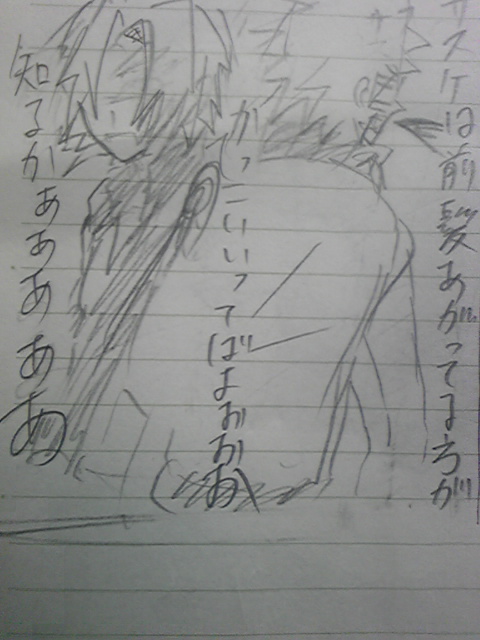 サスケは前髪あがってるろが
かっこいいってばよおおあ
知るかぁあああああ